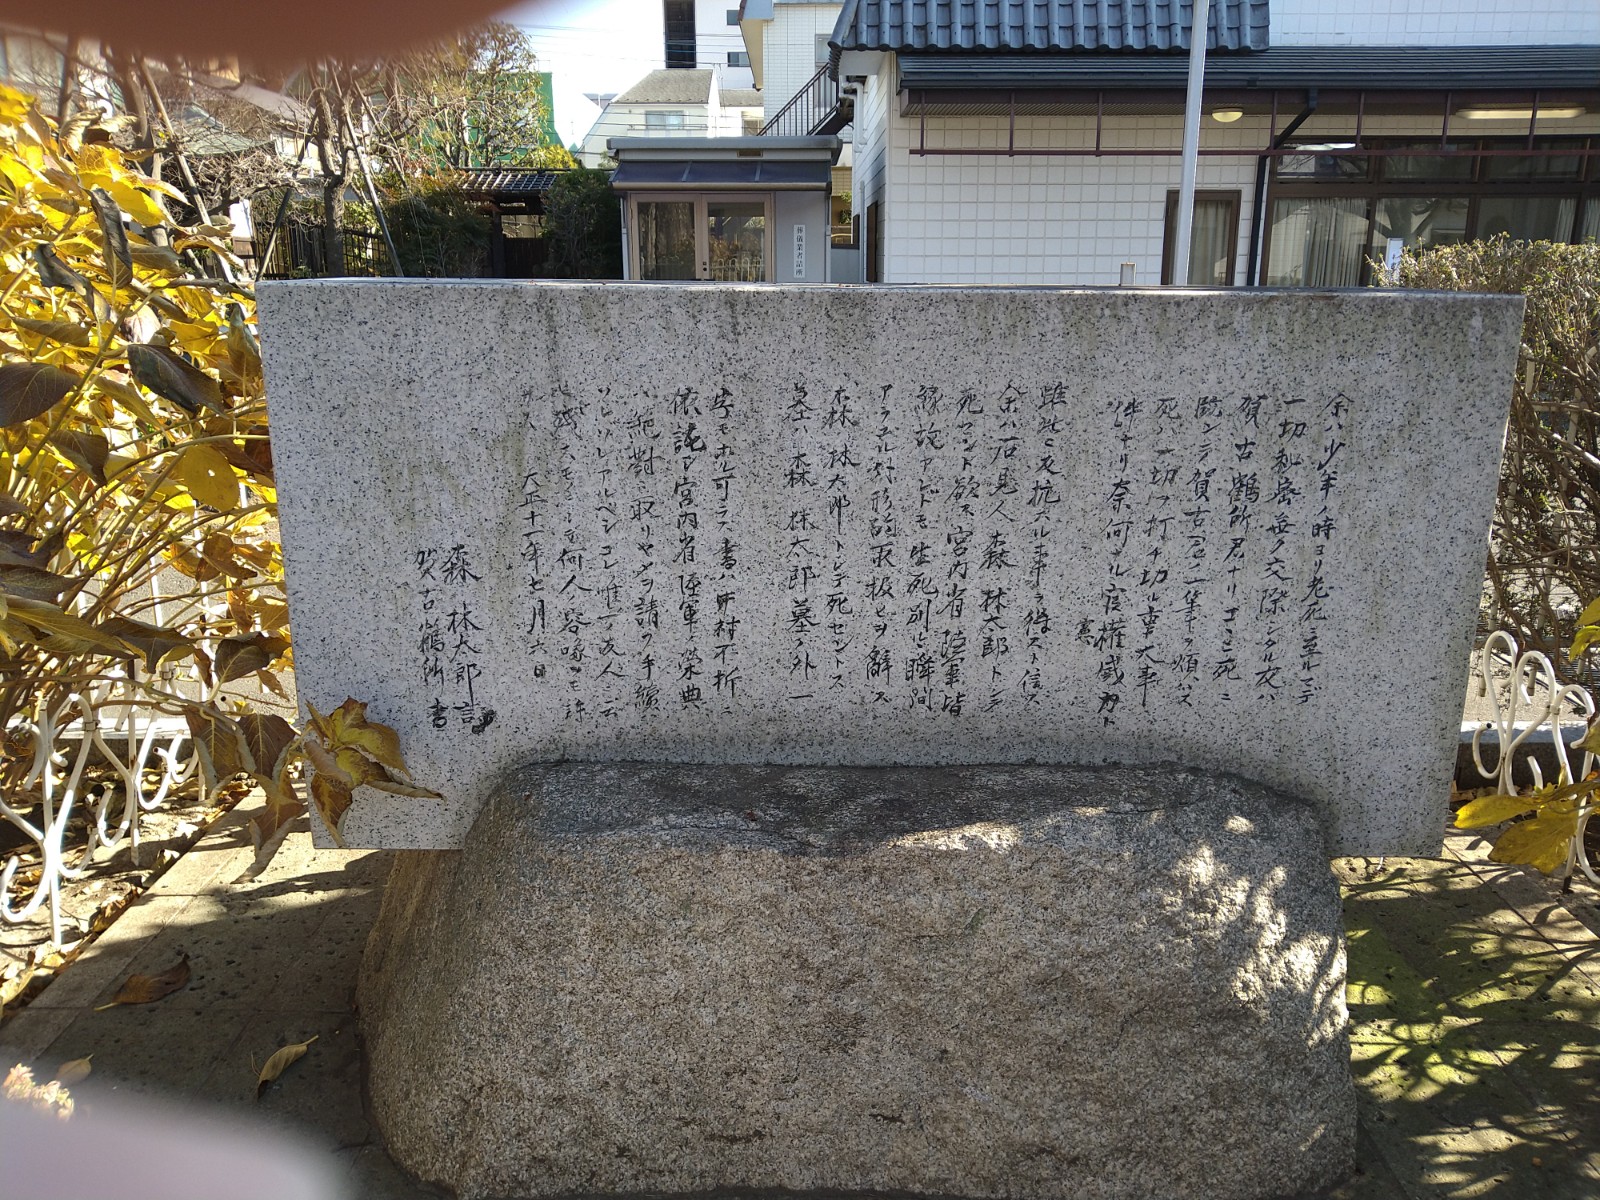 余ハ少年ノ時ヨリ老死ニ至ルマデ
一切秘密無ク交際シタル友ハ
賀古鶴所君ナリコヽニ死ニ
臨ンデ賀古君ノ一筆ヲ煩ハス
死ハ一切ヲ打チ切ル重大事
件ナリ奈何ナル官權威力ト
憲
雖此ニ反抗スル事ヲ得スト信ス
余ハ石見人森林太郎トシテ
死セント欲ス宮内省陸軍皆
縁故アレドモ生死別ルヽ瞬間
アラユル外形的取扱ヒヲ辭ス
森林太郎トシテ死セントス
墓ハ森林太郎墓ノ外一
字モホル可ラス書ハ中村不折ニ
依託シ宮内省陸軍ノ榮典
ハ絶對ニ取リヤメヲ請フ手續ハ
ソレゾレアルベシコレ唯一ノ友人ニ云
ヒ殘スモノニシテ何人ノ容喙ヲモ許
サス 大正十一年七月六日
森林太郎言
賀古鶴所書
葬儀業者詰所